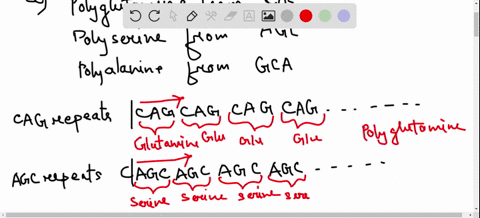 Polyserine from AGC
Polyalanine from GCA
CAG repeats |CAG CAG CAG CAG - - - - - - -
Glutamine Glu Glu Glu Polyglutamine
AGC repeats C|AGC AGC AGC AGC - - - - -
Serine Serine Serine Seri